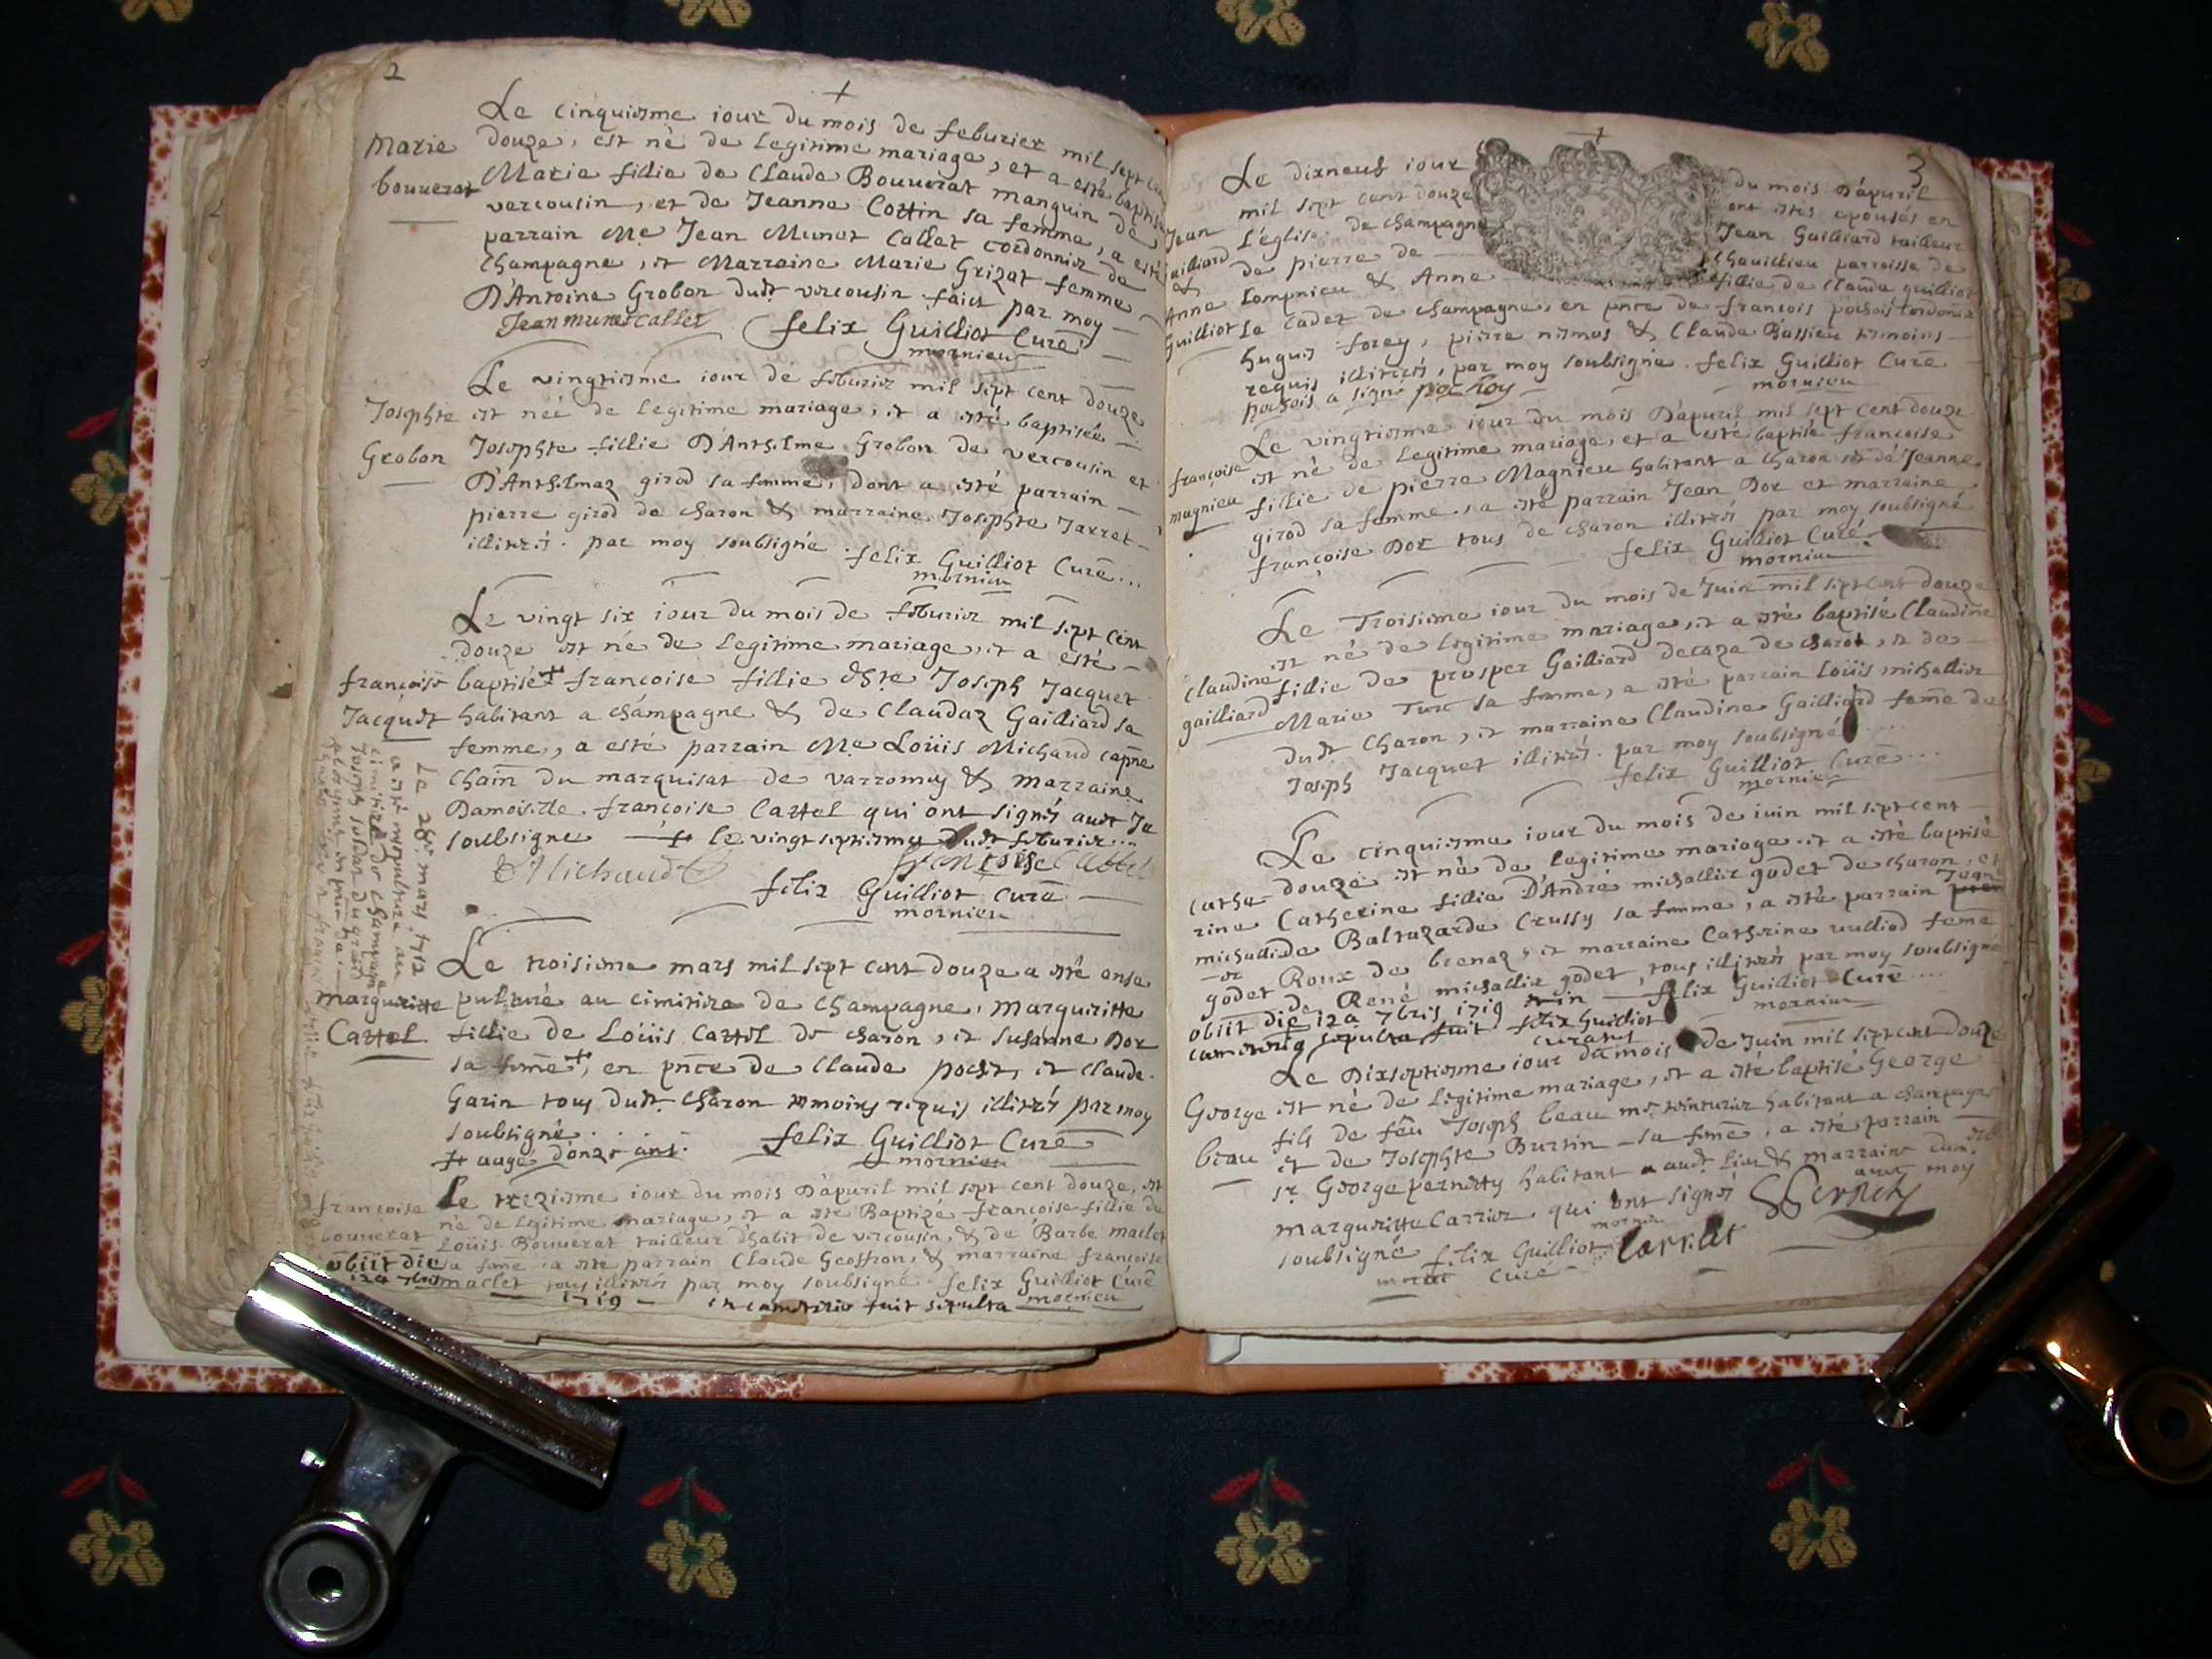 2
+
Le cinquiesme iour du mois de feburier mil sept cen
Marie
douze, est né de legitime mariage, et a esté baptisée
bouuerat
Marie fillie de Claude Bouuerat manguin de
vercousin, et de Jeanne Cottin sa femme, a esté
parrain Me Jean Munet Callet cordonnier de
Champagne, et Marraine Marie Grizat femme
D'Antoine Grobon dudt vercousin faict par moy
Jean munet callet felix Guilliot Curé
mornieu
Le vingtiesme iour de feburier mil sept cent douze
Josephte
est née de legitime mariage, et a esté baptisée
Josephte fillie D'Anthelme Grobon de vercousin et
Grobon
D'Anthelmaz girod sa femme, dont a esté parrain
pierre girod de charon & marraine Josephte Jarret
illitrés. par moy soubsigné felix Guilliot Curé
mornieu
Le vingt six iour du mois de feburier mil sept cent
douze est né de legitime mariage, et a esté
françoise
baptisé + françoise fillie Joseph Jacquet
Jacquet
habitant a champagne & de Claudaz Gailliard sa
femme, a esté parrain Me Loüis Michaud capne
Chain du marquisat de varromey & marraine
Damoiselle françoise Cartel qui ont signés auet Je
soubsigne + le vingtseptiesme dudt feburier
Michaud françoise Cartel
felix Guilliot Curé
mornieu
Le 28e mars 1712
a esté
cimitire de Champagne
Joseph soldat du
Le troisiesme mars mil sept cent douze a esté ense
margueritte
pulturé au cimitiere de Champagne, Margueritte
Cartel
fillie de Loüis Cartel de charon, et Susanne Dor
sa feme +, en pnce de Claude pochet, et Claude
Garin tous dudt Charon temoins requis illitrés par moy
soubsigné felix Guilliot Curé
+ aagé donze ans. mornieu
françoise
Le trezieme iour du mois D'apuril mil sept cent douze, est
né de legitime mariage, et a esté Baptizé françoise fillie de
bouuerat
Loüis Bouuerat tailleur d'habit de vercousin, & de Barbe maclet
obiit die
sa feme a esté parrain Claude Geoffron, & marraine françoise
12a 7bris
maclet tous illitrés par moy soubsigné felix Guilliot Curé
1719 in cemeterio fuit sepulta mornieu
+
3
Le dixneuf iour du mois D'apuril
mil sept cent douze ont estés epousés en
Jean
L'église de champagne Jean Gailliard tailleur
Gailliard
de pierre de Chauillieu parroisse de
&
Lompnieu & Anne fillie de Claude guilliot
Anne
Le Cadet de champagne, en pnce de françois pochois Cordonier
Guilliot
huguis forey, pierre nemos & Claude Bassieu temoins
requis illitrés, par moy soubsigné felix Guilliot Curé
pochois a signe mornieu
Le vingtiesme iour du mois D'apuril mil sept cent douze
françoise
est né de legitime mariage, et a esté baptisé françoise
magnieu
fillie de pierre Magnieu habitant a Charon et de Jeanne
girod sa femme, a esté parrain Jean Dor et marraine
françoise Dor tous de charon illitrés par moy soubsigné
felix Guilliot Curé
mornieu
Le Troisiesme iour du mois de Juin mil sept Cent douze
est né de legitime mariage, et a esté baptisé Claudine
Claudine
fillie de prosper Gailliard decaza de charon, et de
gailliard
Marie Turc sa femme, a esté parrain Loüis michallier
dudt Charon, et marraine Claudine Gailliard feme de
Joseph Jacquet illitrés. par moy soubsigné
felix Guilliot Curé
mornieu
Le cinquiesme iour du mois de iuin mil sept cent
douze est né de legitime mariage et a esté baptisé
Cathe
rine
Catherine fillie D'André michallier godet de charon, et
michalli
de Baltazarde Crussy sa femme, a esté parrain Jean
er
Roux de brenaz, et marraine Catherine uulliod feme
godet
de René michallier godet, tous illitrés par moy soubsigné
obiit die 12a 7bris 1719 & in felix Guilliot Curé
cemeterio sepulta fuit felix Guilliot mornieu
curatus
Le Dixseptiesme iour du mois de Juin mil sept cent douze
George
est né de legitime mariage, et a esté baptisé George
fils de feu Joseph beau me teinturier habitant a champagne
beau
et de Josephte Burtin sa feme, a esté parrain
sr George pernetty habitant audt lieu & marraine
margueritte Carrier qui ont signés auec moy
soubsigné felix Guilliot mornieu
Curé